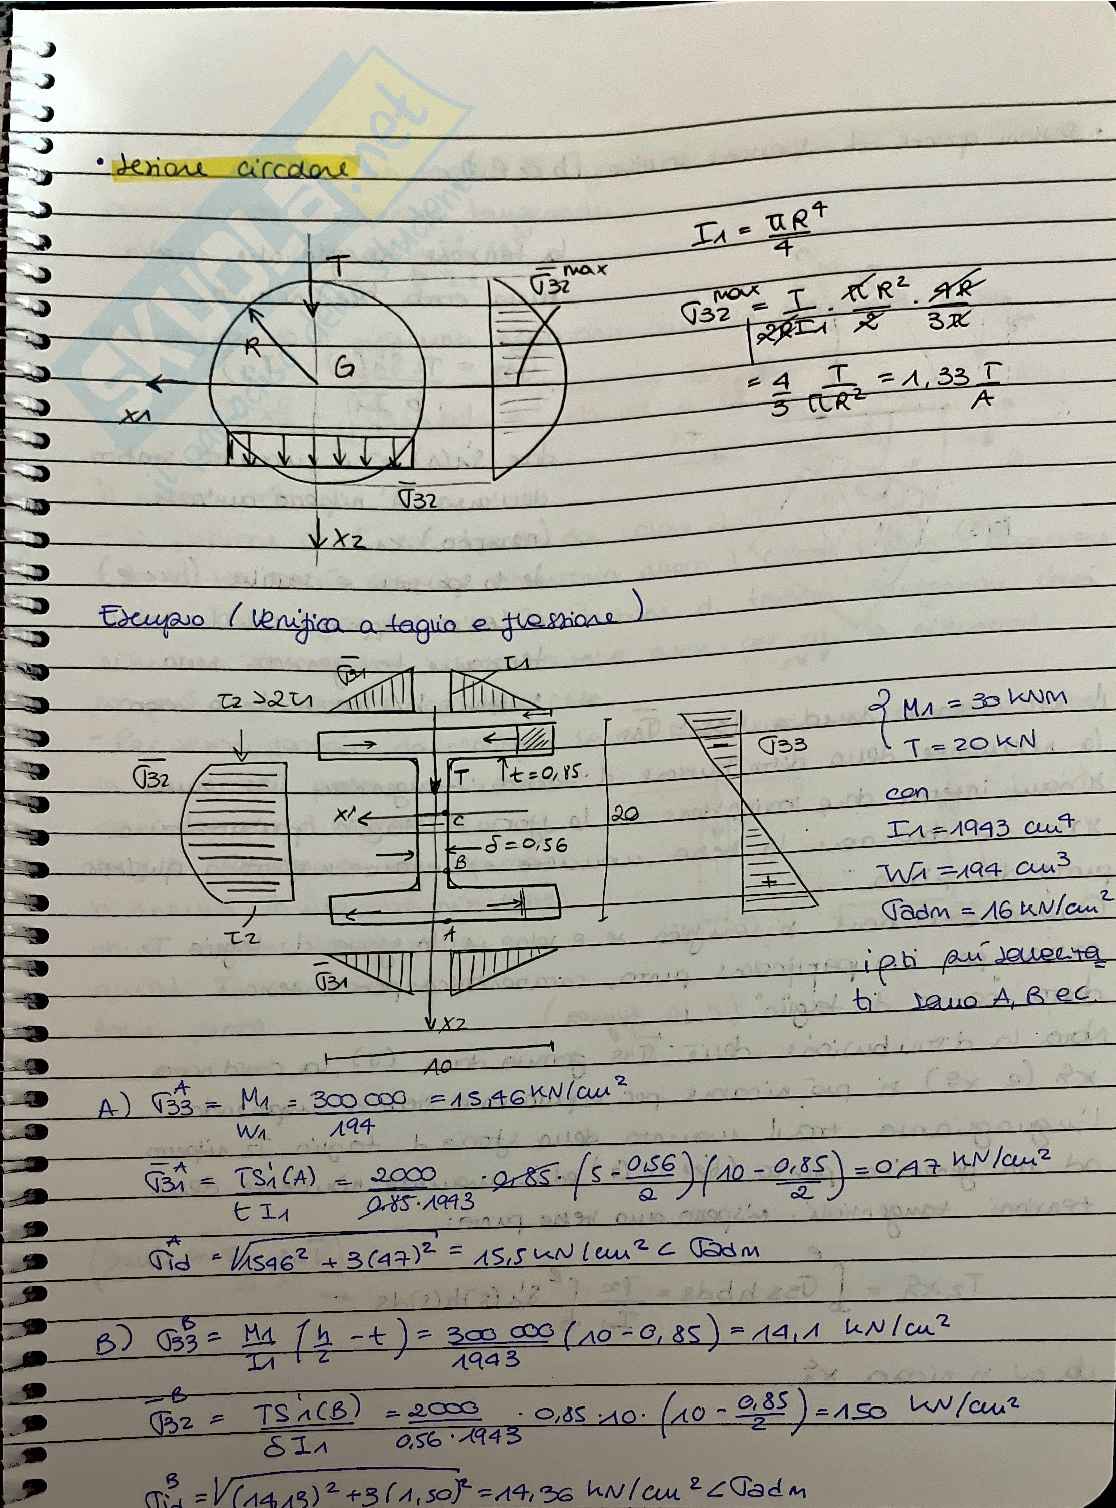 • sezione circolare
I1 = πR⁴/4
T
σ̄32 max
σ32 max = T/(2R I1) · πR²/2 · 4R/3π
R
G
= 4/3 T/(πR²) = 1,33 T/A
x1
σ̄32
x2
Esempio (verifica a taglio e flessione)
σ̄31
τ1
τ2 > 2τ1
M1 = 30 KNm
σ̄32
σ33
T
T = 20 KN
t = 0,85.
−
con
x1
C
20
I1 = 1943 cm⁴
δ = 0,56
B
W1 = 194 cm³
+
σadm = 16 KN/cm²
τ2
A
i pti più sollecita
σ̄31
ti sono A, B e C.
x2
10
A) σ33 A = M1/W1 = 300 000/194 = 15,46 KN/cm²
σ̄31 A = TS'1(A)/(t I1) = 2000/(0,85·1943) · 0,85 · (5 − 0,56/2)(10 − 0,85/2) = 0,47 KN/cm²
σid A = √1546² + 3(47)² = 15,5 KN/cm² < σadm
B) σ33 B = M1/I1 (h/2 − t) = 300 000/1943 (10 − 0,85) = 14,1 KN/cm²
σ̄32 B = TS'1(B)/(δ I1) = 2000/(0,56·1943) · 0,85·10 · (10 − 0,85/2) = 150 KN/cm²
σid B = √(14,13)² + 3(1,50)² = 14,36 KN/cm² < σadm